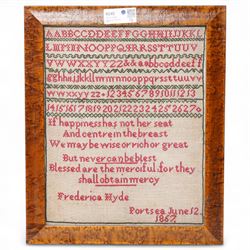 AABBCCDDEEFFGGHHIIJJKKL
LMMNNOOPPQQRRSSTTUUVV
WWXXYYZZ aabbccddeeff
gghhiijjkkllmmnnooppqrrssttuuvv
wwxxyyzz 1 2 3 4 5 6 7 8 9 10 11 12 13
14 15 16 17 18 19 20 21 22 23 24 25 26 27
If happiness has not her seat
And centre in the breast
We may be wise or rich or great
But never can be blest
Blessed are the merciful for they
shall obtain mercy
Frederica Hyde
Portsea June 12
1867